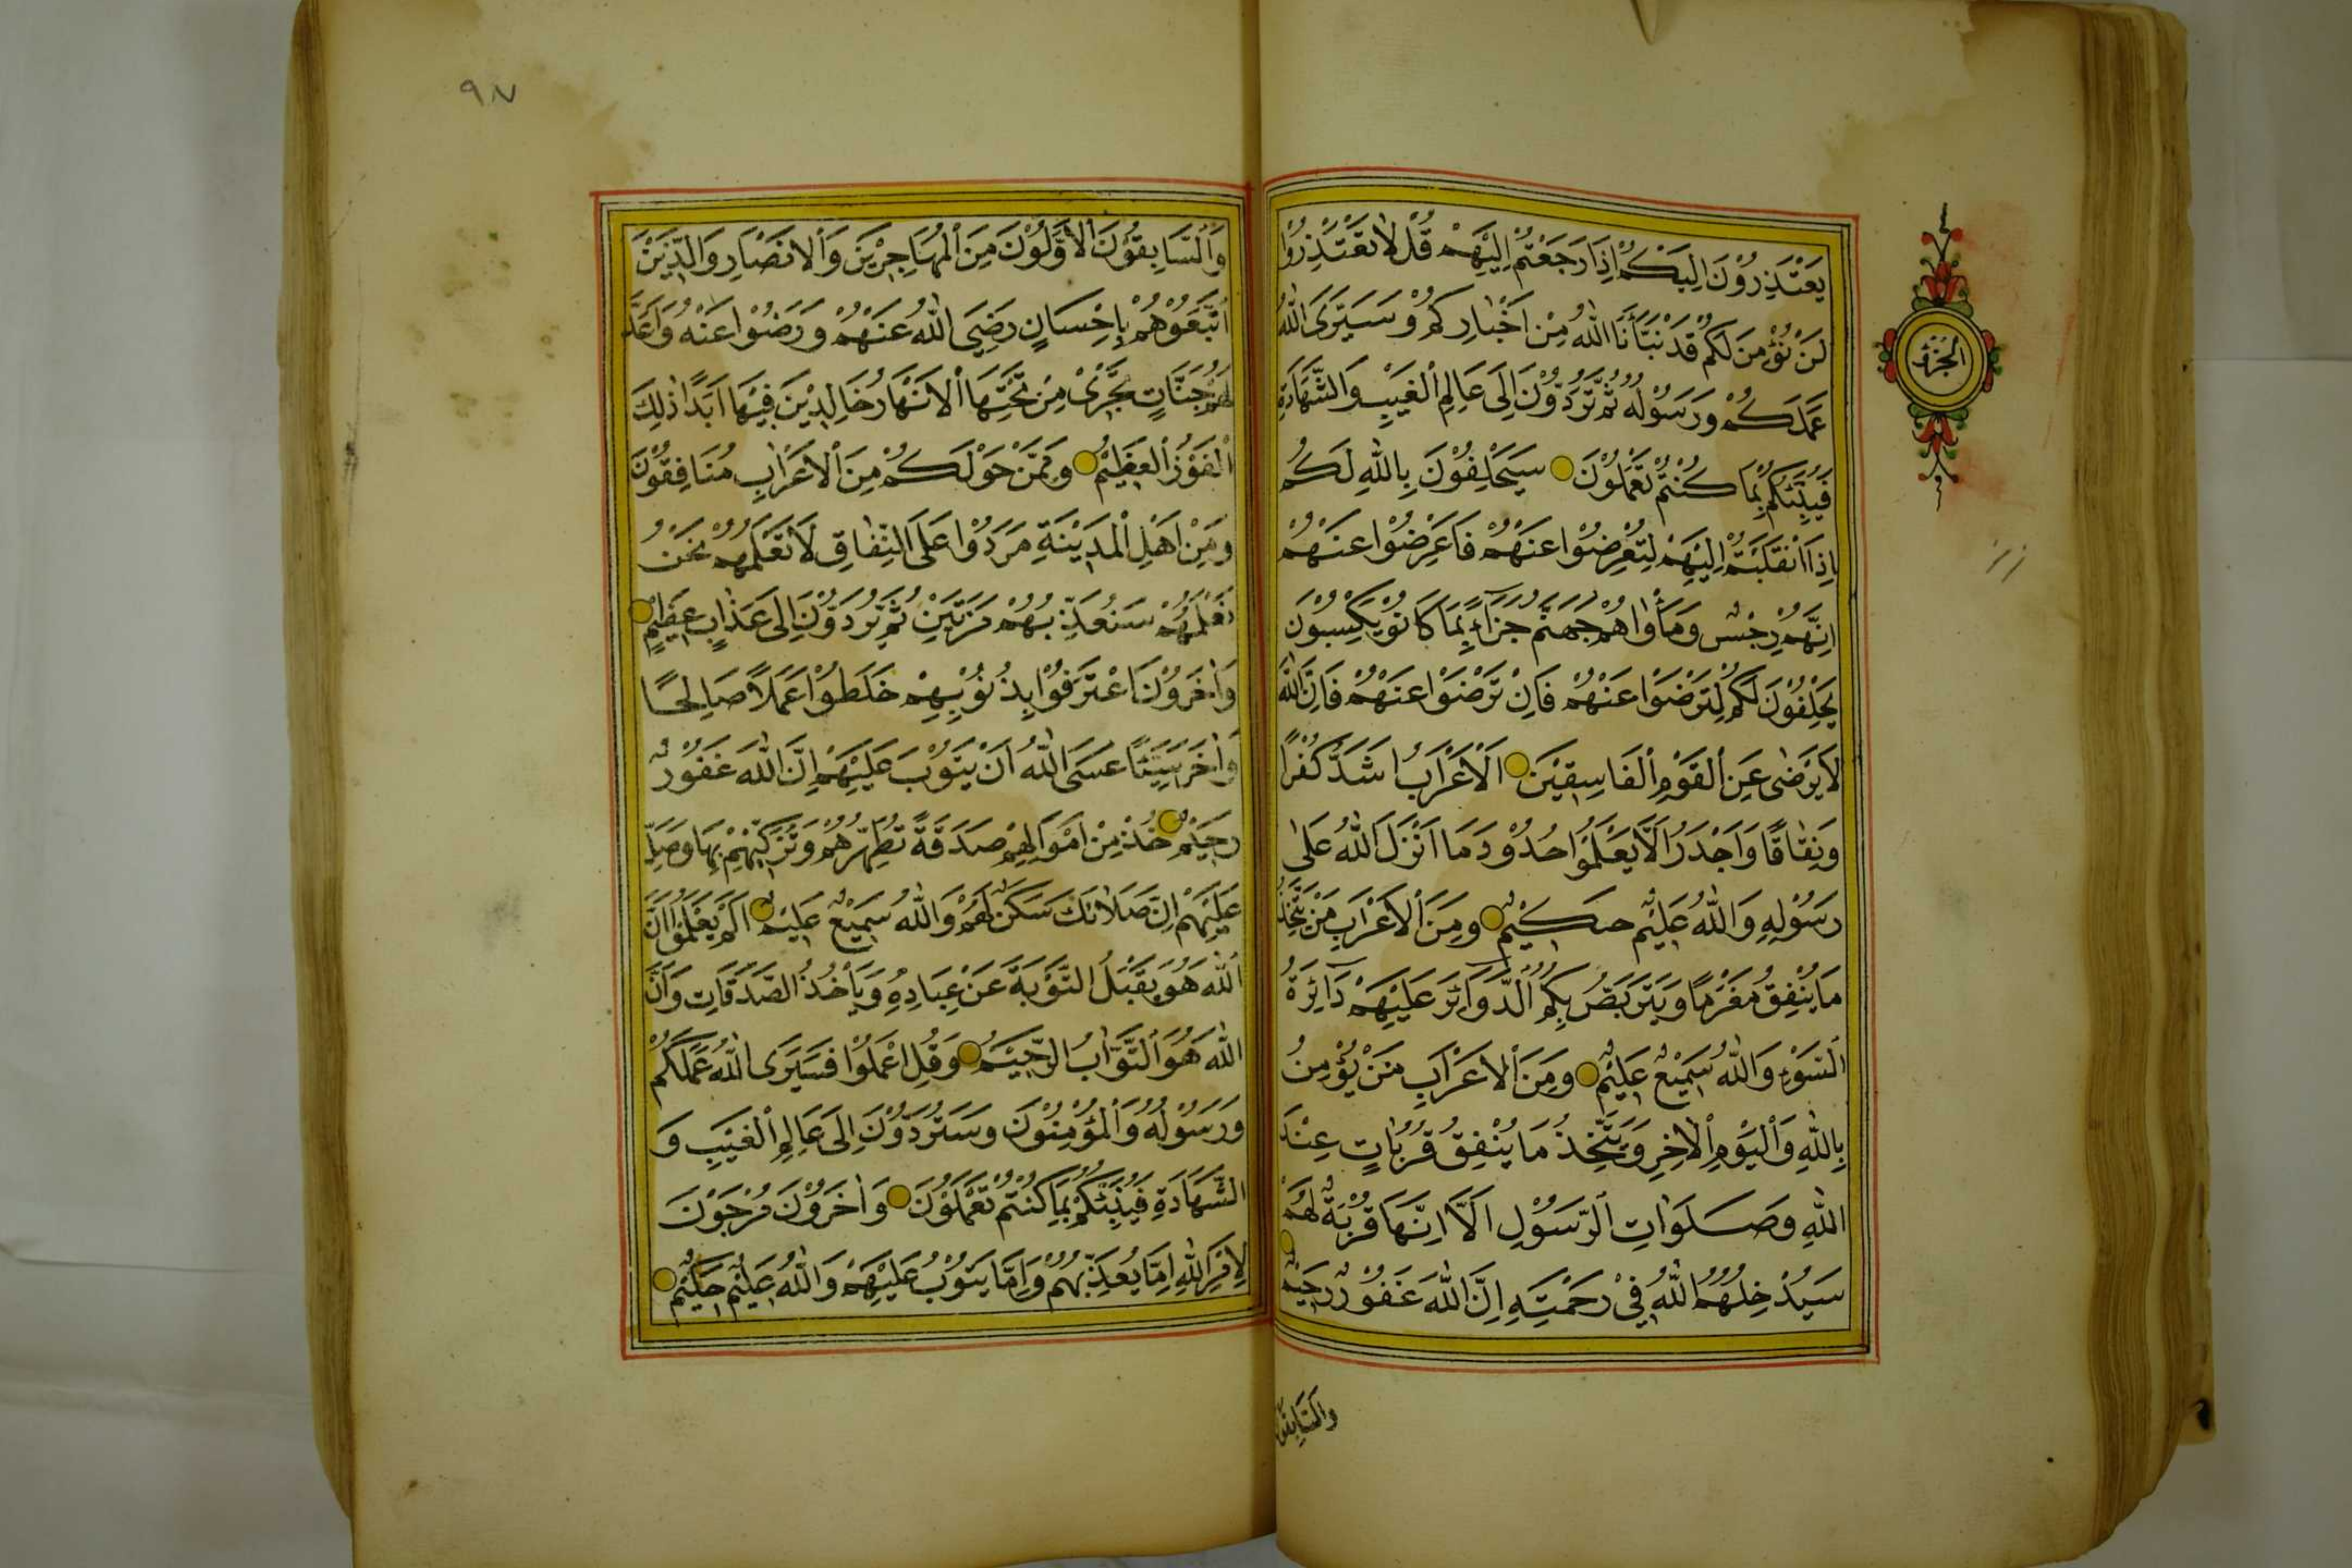 يَعْتَذِرُوْنَ اِلَيْكُمْ اِذَا رَجَعْتُمْ اِلَيْهِمْ قُلْ لَا تَعْتَذِرُوْا
لَنْ نُؤْمِنَ لَكُمْ قَدْ نَبَّأَنَا اللّٰهُ مِنْ اَخْبَارِكُمْ وَسَيَرَى اللّٰهُ
عَمَلَكُمْ وَرَسُوْلُهُ ثُمَّ تُرَدُّوْنَ اِلَى عَالِمِ الْغَيْبِ وَالشَّهَادَةِ
فَيُنَبِّئُكُمْ بِمَا كُنْتُمْ تَعْمَلُوْنَ سَيَحْلِفُوْنَ بِاللّٰهِ لَكُمْ
اِذَا انْقَلَبْتُمْ اِلَيْهِمْ لِتُعْرِضُوْا عَنْهُمْ فَاَعْرِضُوْا عَنْهُمْ
اِنَّهُمْ رِجْسٌ وَمَأْوٰاهُمْ جَهَنَّمُ جَزَآءً بِمَا كَانُوْ يَكْسِبُوْنَ
يَحْلِفُوْنَ لَكُمْ لِتَرْضَوْا عَنْهُمْ فَاِنْ تَرْضَوْا عَنْهُمْ فَاِنَّ اللّٰهَ
لَا يَرْضٰى عَنِ الْقَوْمِ الْفَاسِقِيْنَ اَلْاَعْرَابُ اَشَدُّ كُفْرًا
وَنِفَاقًا وَاَجْدَرُ اَلَّا يَعْلَمُوْا حُدُوْدَ مَا اَنْزَلَ اللّٰهُ عَلٰى
رَسُوْلِهِ وَاللّٰهُ عَلِيْمٌ حَكِيْمٌ وَمِنَ الْاَعْرَابِ مَنْ يَتَّخِذُ
مَا يُنْفِقُ مَغْرَمًا وَيَتَرَبَّصُ بِكُمُ الدَّوَائِرَ عَلَيْهِمْ دَائِرَةُ
السَّوْءِ وَاللّٰهُ سَمِيْعٌ عَلِيْمٌ وَمِنَ الْاَعْرَابِ مَنْ يُؤْمِنُ
بِاللّٰهِ وَالْيَوْمِ الْاٰخِرِ وَيَتَّخِذُ مَا يُنْفِقُ قُرُبَاتٍ عِنْدَ
اللّٰهِ وَصَلَوَاتِ الرَّسُوْلِ اَلَا اِنَّهَا قُرْبَةٌ لَهُمْ
سَيُدْخِلُهُمُ اللّٰهُ فِيْ رَحْمَتِهِ اِنَّ اللّٰهَ غَفُوْرٌ رَحِيْمٌ
وَالسَّابِقُوْنَ
الجزؤ
٩٧
وَالسَّابِقُوْنَ الْاَوَّلُوْنَ مِنَ الْمُهَاجِرِيْنَ وَالْاَنْصَارِ وَالَّذِيْنَ
اتَّبَعُوْهُمْ بِاِحْسَانٍ رَضِيَ اللّٰهُ عَنْهُمْ وَرَضُوْا عَنْهُ وَاَعَدَّ
لَهُمْ جَنَّاتٍ تَجْرِيْ مِنْ تَحْتِهَا الْاَنْهَارُ خَالِدِيْنَ فِيْهَا اَبَدًا ذٰلِكَ
الْفَوْزُ الْعَظِيْمُ وَمِمَّنْ حَوْلَكُمْ مِنَ الْاَعْرَابِ مُنَافِقُوْنَ
وَمِنْ اَهْلِ الْمَدِيْنَةِ مَرَدُوْا عَلَى النِّفَاقِ لَا تَعْلَمُهُمْ نَحْنُ
نَعْلَمُهُمْ سَنُعَذِّبُهُمْ مَرَّتَيْنِ ثُمَّ تُرَدُّوْنَ اِلٰى عَذَابٍ عَظِيْمٍ
وَاٰخَرُوْنَ اعْتَرَفُوْا بِذُنُوْبِهِمْ خَلَطُوْا عَمَلًا صَالِحًا
وَاٰخَرَ سَيِّئًا عَسَى اللّٰهُ اَنْ يَتُوْبَ عَلَيْهِمْ اِنَّ اللّٰهَ غَفُوْرٌ
رَحِيْمٌ خُذْ مِنْ اَمْوَالِهِمْ صَدَقَةً تُطَهِّرُهُمْ وَتُزَكِّيْهِمْ بِهَا وَصَلِّ
عَلَيْهِمْ اِنَّ صَلَاتَكَ سَكَنٌ لَهُمْ وَاللّٰهُ سَمِيْعٌ عَلِيْمٌ اَلَمْ يَعْلَمُوْا اَنَّ
اللّٰهَ هُوَ يَقْبَلُ التَّوْبَةَ عَنْ عِبَادِهِ وَيَأْخُذُ الصَّدَقَاتِ وَاَنَّ
اللّٰهَ هُوَ التَّوَّابُ الرَّحِيْمُ وَقُلِ اعْمَلُوْا فَسَيَرَى اللّٰهُ عَمَلَكُمْ
وَرَسُوْلُهُ وَالْمُؤْمِنُوْنَ وَسَتُرَدُّوْنَ اِلٰى عَالِمِ الْغَيْبِ وَ
الشَّهَادَةِ فَيُنَبِّئُكُمْ بِمَا كُنْتُمْ تَعْمَلُوْنَ وَاٰخَرُوْنَ مُرْجَوْنَ
لِاَمْرِ اللّٰهِ اِمَّا يُعَذِّبُهُمْ وَاِمَّا يَتُوْبُ عَلَيْهِمْ وَاللّٰهُ عَلِيْمٌ حَكِيْمٌ